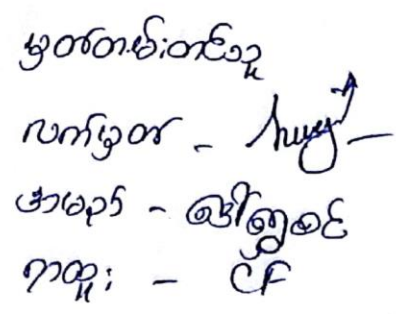 မှတ်တမ်းတင်သူ
လက်မှတ် -
အမည် - ဒေါ်
ရာထူး - CF